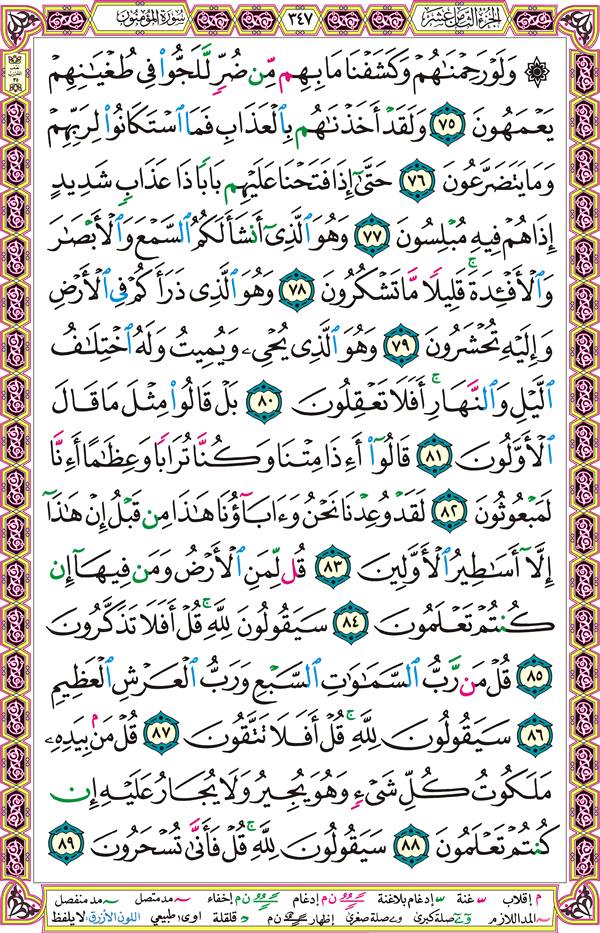 الجزء الثامن عشر ٣٤٧ سورة المؤمنون
۞ وَلَوْ رَحِمْنَٰهُمْ وَكَشَفْنَا مَا بِهِم مِّن ضُرٍّ لَّلَجُّوا۟ فِى طُغْيَٰنِهِمْ
يَعْمَهُونَ ٧٥ وَلَقَدْ أَخَذْنَٰهُم بِٱلْعَذَابِ فَمَا ٱسْتَكَانُوا۟ لِرَبِّهِمْ
وَمَا يَتَضَرَّعُونَ ٧٦ حَتَّىٰٓ إِذَا فَتَحْنَا عَلَيْهِم بَابًا ذَا عَذَابٍ شَدِيدٍ
إِذَا هُمْ فِيهِ مُبْلِسُونَ ٧٧ وَهُوَ ٱلَّذِىٓ أَنشَأَ لَكُمُ ٱلسَّمْعَ وَٱلْأَبْصَٰرَ
وَٱلْأَفْـِٔدَةَ ۚ قَلِيلًا مَّا تَشْكُرُونَ ٧٨ وَهُوَ ٱلَّذِى ذَرَأَكُمْ فِى ٱلْأَرْضِ
وَإِلَيْهِ تُحْشَرُونَ ٧٩ وَهُوَ ٱلَّذِى يُحْىِۦ وَيُمِيتُ وَلَهُ ٱخْتِلَٰفُ
ٱلَّيْلِ وَٱلنَّهَارِ ۚ أَفَلَا تَعْقِلُونَ ٨٠ بَلْ قَالُوا۟ مِثْلَ مَا قَالَ
ٱلْأَوَّلُونَ ٨١ قَالُوٓا۟ أَءِذَا مِتْنَا وَكُنَّا تُرَابًا وَعِظَٰمًا أَءِنَّا
لَمَبْعُوثُونَ ٨٢ لَقَدْ وُعِدْنَا نَحْنُ وَءَابَآؤُنَا هَٰذَا مِن قَبْلُ إِنْ هَٰذَآ
إِلَّآ أَسَٰطِيرُ ٱلْأَوَّلِينَ ٨٣ قُل لِّمَنِ ٱلْأَرْضُ وَمَن فِيهَآ إِن
كُنتُمْ تَعْلَمُونَ ٨٤ سَيَقُولُونَ لِلَّهِ ۚ قُلْ أَفَلَا تَذَكَّرُونَ
٨٥ قُلْ مَن رَّبُّ ٱلسَّمَٰوَٰتِ ٱلسَّبْعِ وَرَبُّ ٱلْعَرْشِ ٱلْعَظِيمِ
٨٦ سَيَقُولُونَ لِلَّهِ ۚ قُلْ أَفَلَا تَتَّقُونَ ٨٧ قُلْ مَنۢ بِيَدِهِۦ
مَلَكُوتُ كُلِّ شَىْءٍ وَهُوَ يُجِيرُ وَلَا يُجَارُ عَلَيْهِ إِن
كُنتُمْ تَعْلَمُونَ ٨٨ سَيَقُولُونَ لِلَّهِ ۚ قُلْ فَأَنَّىٰ تُسْحَرُونَ ٨٩
م إقلاب غنة إدغام بلاغنة ن م إدغام إخفاء مد متصل مد منفصل
المد اللازم صلة كبرى صلة صغرى إظهار ن م قلقلة اوى طبيعي اللون الأزرق: لا يلفظ